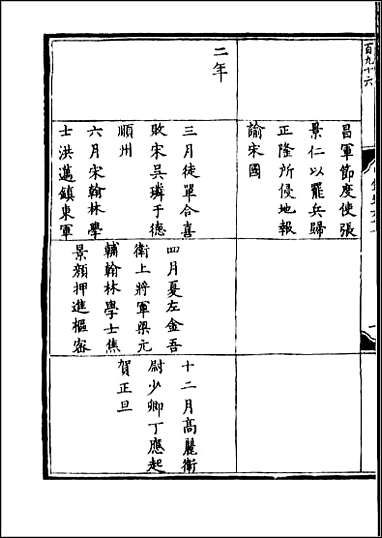 百九十六
昌軍節度使張
景仁以罷兵歸
正隆所侵地報
諭宋國
二年
三月徒單合喜
敗宋吳璘于德
順州
六月宋翰林學
士洪邁鎮東軍
四月夏左金吾
衛上將軍梁元
輔翰林學士焦
景顏押進樞密
十二月高麗衛
尉少卿丁應起
賀正旦